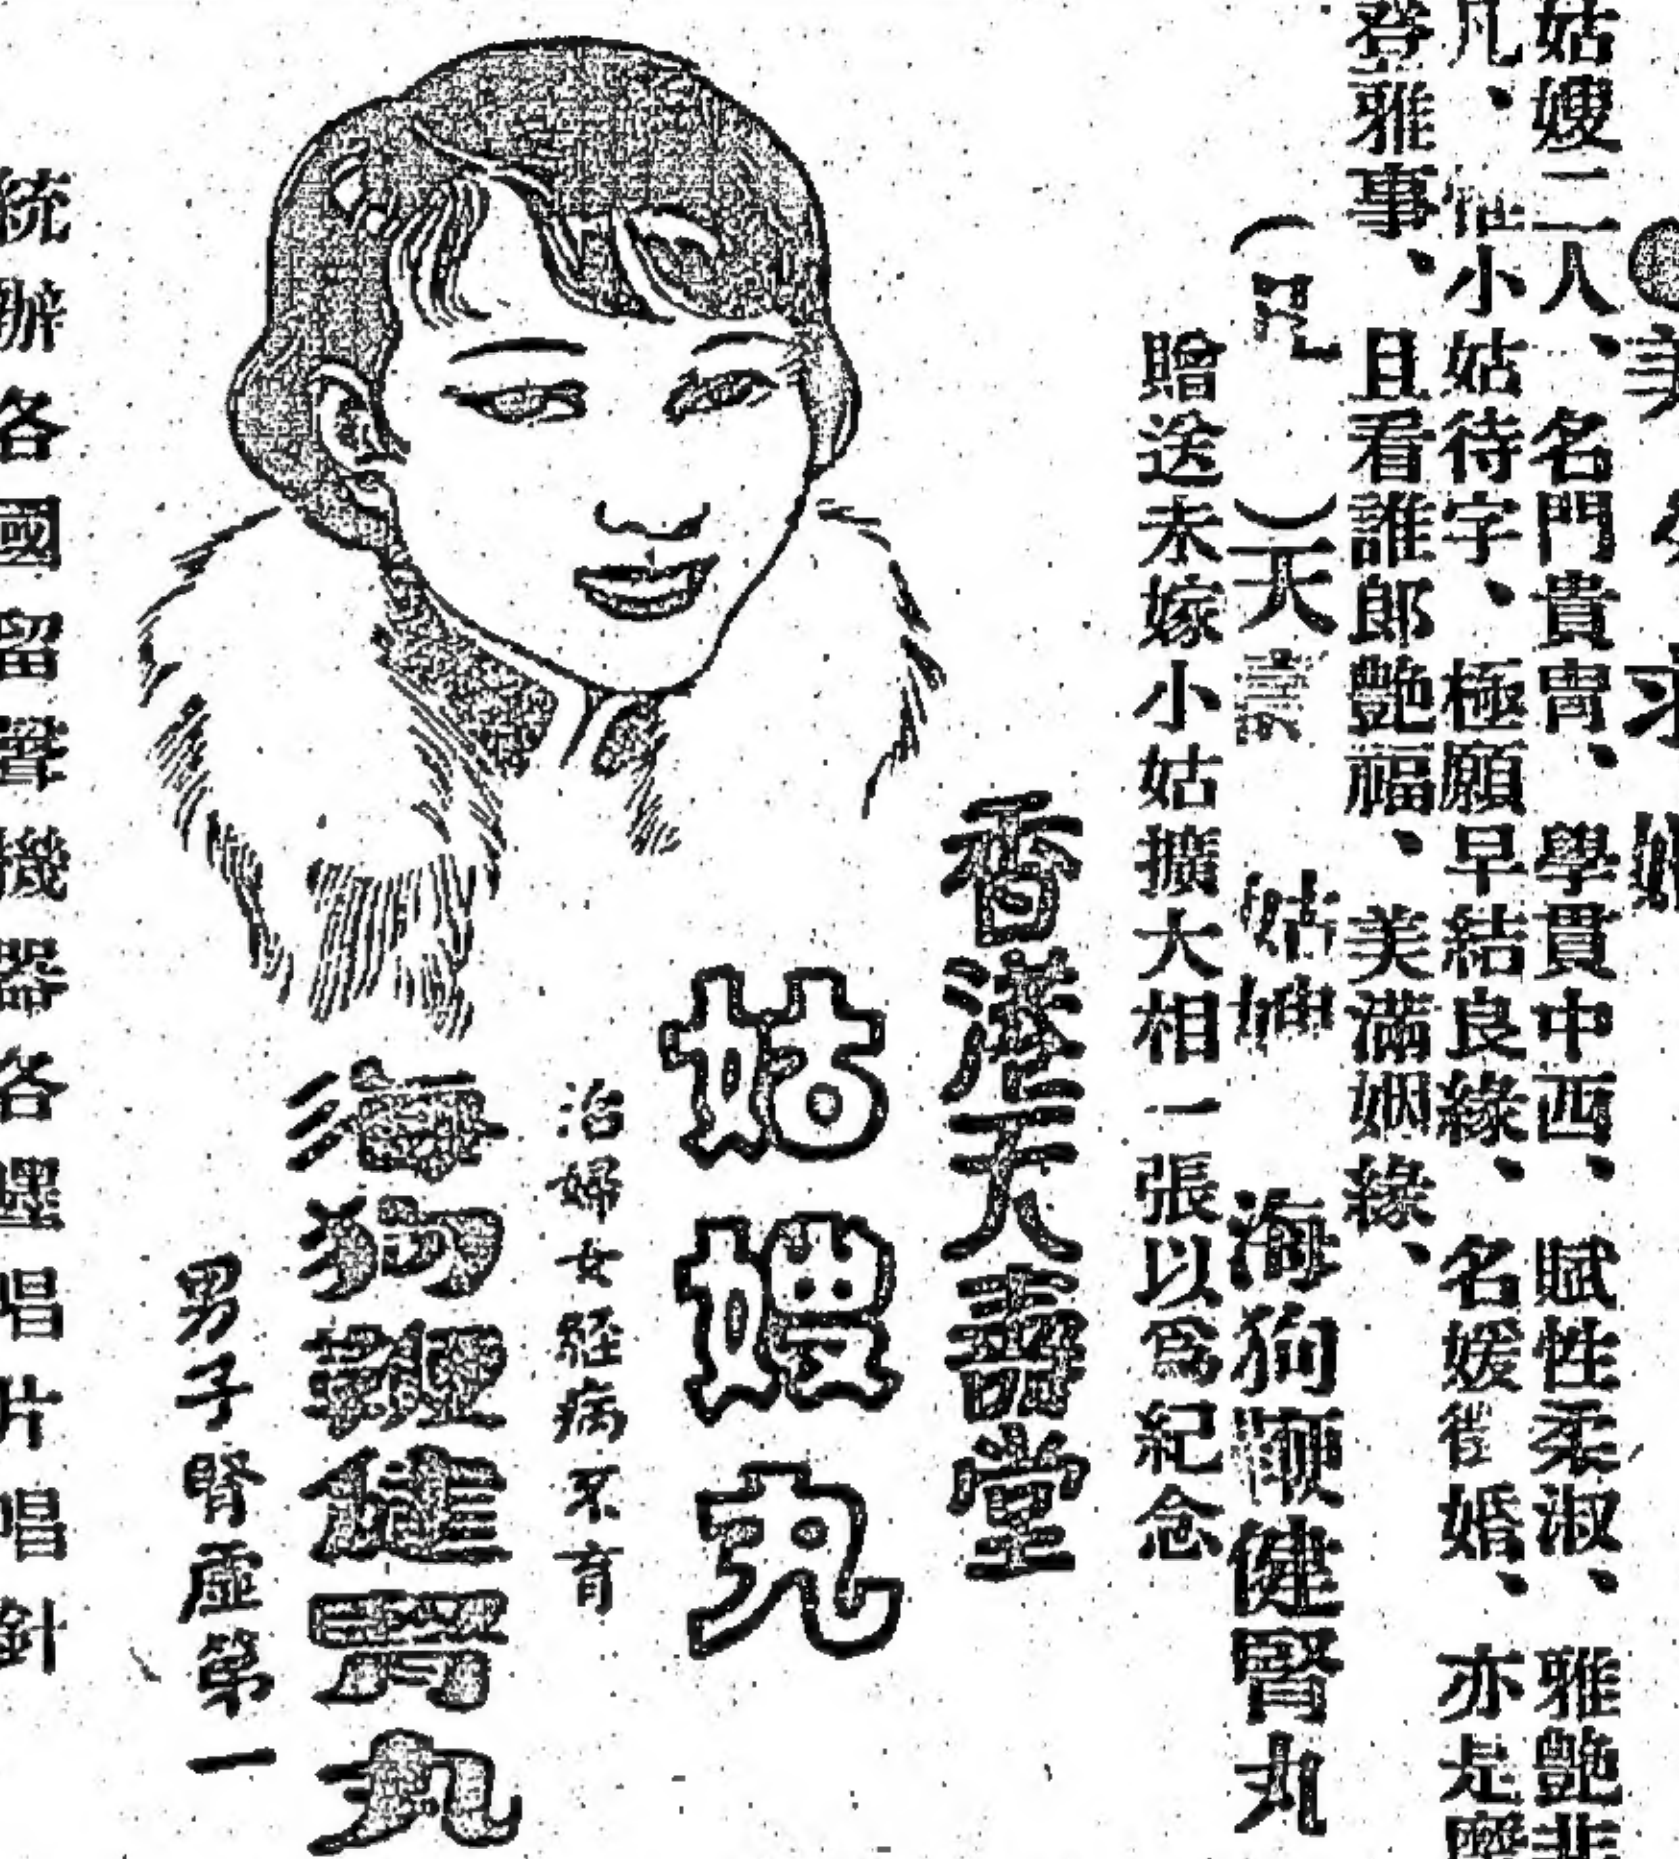 美 求
姑嫂二人、名門貴胄、學貫中西、賦性柔淑、雅艷非
凡、惟小姑待字、極願早結良緣、名媛徵婚、亦是
登雅事、且看誰郎艷福、美滿姻緣、
天 姑 海狗鞭健腎丸
贈送未嫁小姑擴大相一張以爲紀念
香港天壽堂
姑嫂丸
治婦女經病不育
海狗鞭健腎丸
男子腎虛第一
統辦各國留聲機器各種唱片唱針